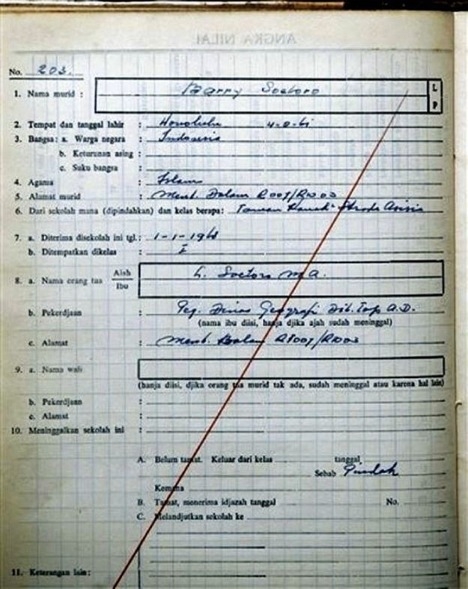 ANGKA NILAI
No. 203.
1. Nama murid : Barry Soetoro L P
2. Tempat dan tanggal lahir : Honolulu 4-8-61
3. Bangsa: a. Warga negara : Indonesia
b. Keturunan asing :
c. Suku bangsa :
4. Agama : Islam
5. Alamat murid : Ment. Dalam R001/RW003
6. Dari sekolah mana (dipindahkan) dan kelas berapa: Taman Strada Asisia
7. a. Diterima disekolah ini tgl.: 1-1-1968
b. Ditempatkan dikelas : I
8. a. Nama orang tua Ajah Ibu L. Soetoro M.A.
b. Pekerdjaan : Peg. Dinas Geografi Dit. Top. A.D.
(nama ibu diisi, hanja djika ajah sudah meninggal)
c. Alamat : Ment. Dalam R001/RW003
9. a. Nama wali
(hanja diisi, djika orang tua murid tak ada, sudah meninggal atau karena hal lain)
b. Pekerdjaan :
c. Alamat :
10. Meninggalkan sekolah ini :
A. Belum tamat. Keluar dari kelas tanggal
Sebab Pindah
Kemana
B. Tamat, menerima idjazah tanggal No.
C. Melandjutkan sekolah ke
11. Keterangan lain :